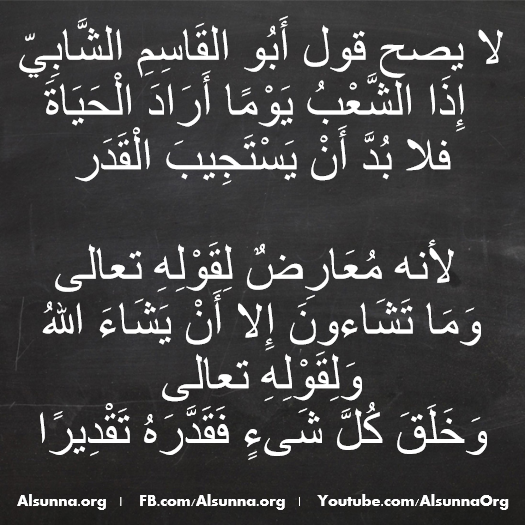 لا يصح قول أَبُو القَاسِمِ الشَّابِيّ
إِذَا الشَّعْبُ يَوْمًا أَرَادَ الْحَيَاةَ
فلا بُدَّ أَنْ يَسْتَجِيبَ الْقَدَر
لأنه مُعَارِضٌ لِقَوْلِهِ تعالى
وَمَا تَشَاءونَ إِلا أَنْ يَشَاءَ اللهُ
وَلِقَوْلِهِ تعالى
وَخَلَقَ كُلَّ شَىءٍ فَقَدَّرَهُ تَقْدِيرًا
Alsunna.org | FB.com/Alsunna.org | Youtube.com/AlsunnaOrg